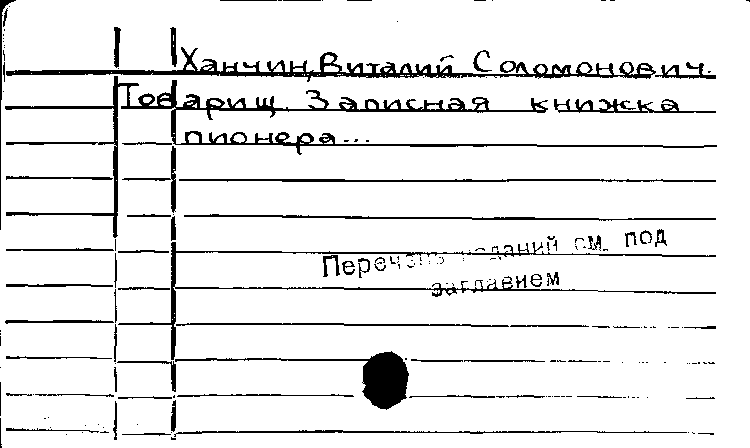 Ханчин, Виталий Соломонович.
Товарищ. Записная книжка
пионера...
Перечень изданий см. под
заглавием